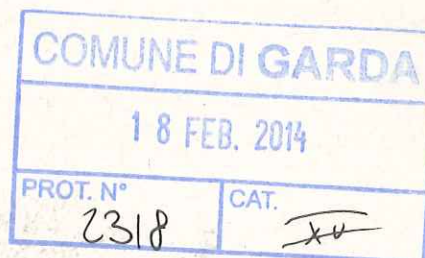 COMUNE DI GARDA
18 FEB. 2014
PROT. N° CAT.
2318 XV